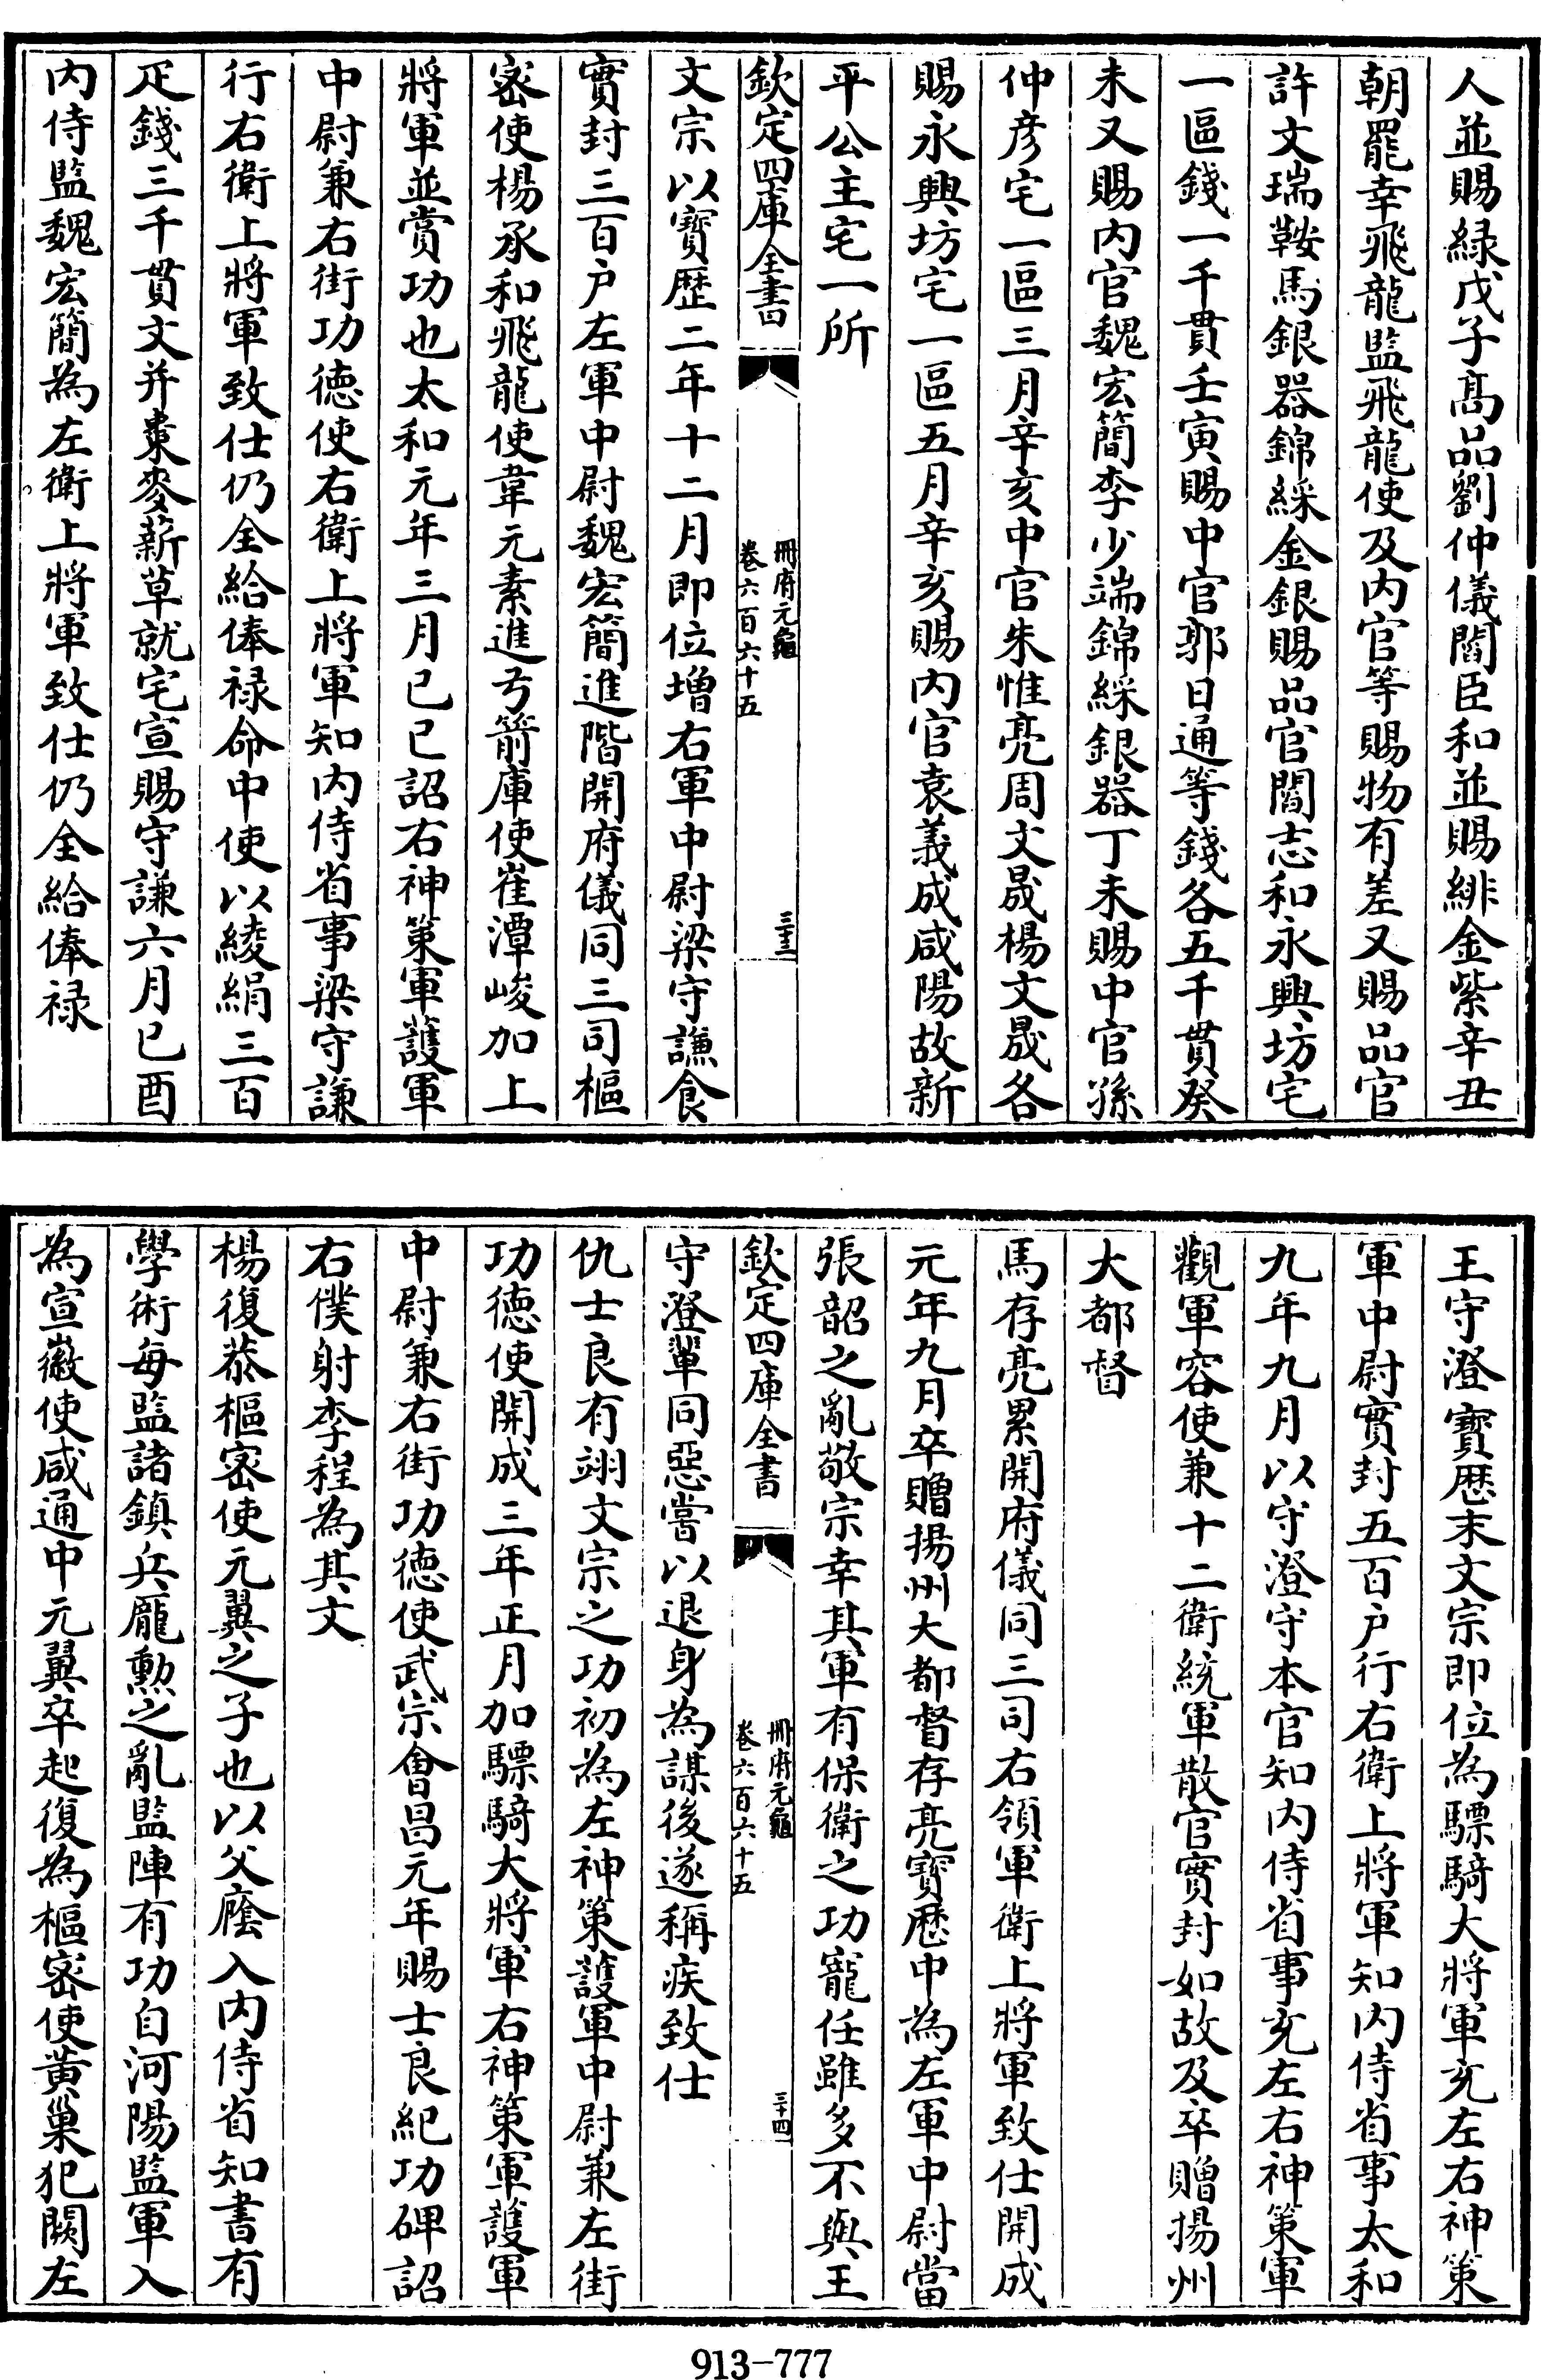 人並賜緑戊子髙品劉仲儀閻臣和並賜緋金紫辛丑
朝罷幸飛龍監飛龍使及内官等賜物有差又賜品官
許文瑞鞍馬銀器錦綵金銀賜品官閻志和永興坊宅
一區錢一千貫壬寅賜中官郭日通等錢各五千貫癸
未又賜内官魏宏簡李少端錦綵銀器丁未賜中官孫
仲彦宅一區三月辛亥中官朱惟亮周文晟楊文晟各
賜永興坊宅一區五月辛亥賜内官袁義成咸陽故新
平公主宅一所
欽定四庫全書
冊府元龜
卷六百六十五
三十三
文宗以寳歴二年十二月即位増右軍中尉梁守謙食
實封三百户左軍中尉魏宏簡進階開府儀同三司樞
宻使楊承和飛龍使韋元素進弓箭庫使崔潭峻加上
將軍並賞功也太和元年三月己巳詔右神策軍護軍
中尉兼右街功徳使右衛上將軍知内侍省事梁守謙
行右衛上將軍致仕仍全給俸禄命中使以綾絹三百
疋錢三千貫文并棗麥薪草就宅宣賜守謙六月己酉
内侍監魏宏簡為左衛上將軍致仕仍全給俸禄
王守澄寳歴末文宗即位為驃騎大將軍充左右神策
軍中尉實封五百户行右衛上將軍知内侍省事太和
九年九月以守澄守本官知内侍省事充左右神策軍
觀軍容使兼十二衛統軍散官實封如故及卒贈揚州
大都督
馬存亮累開府儀同三司右領軍衛上將軍致仕開成
元年九月卒贈揚州大都督存亮寳歴中為左軍中尉當
張韶之亂敬宗幸其軍有保衛之功寵任雖多不與王
欽定四庫全書
冊府元龜
卷六百六十五
三十四
守澄輩同惡嘗以退身為謀後遂稱疾致仕
仇士良有翊文宗之功初為左神策護軍中尉兼左街
功徳使開成三年正月加驃騎大將軍右神策軍護軍
中尉兼右街功徳使武宗會昌元年賜士良紀功碑詔
右僕射李程為其文
楊復恭樞宻使元翼之子也以父廕入内侍省知書有
學術每監諸鎮兵龐勲之亂監陣有功自河陽監軍入
為宣徽使咸通中元翼卒起復為樞宻使黄巢犯闕左
913-777